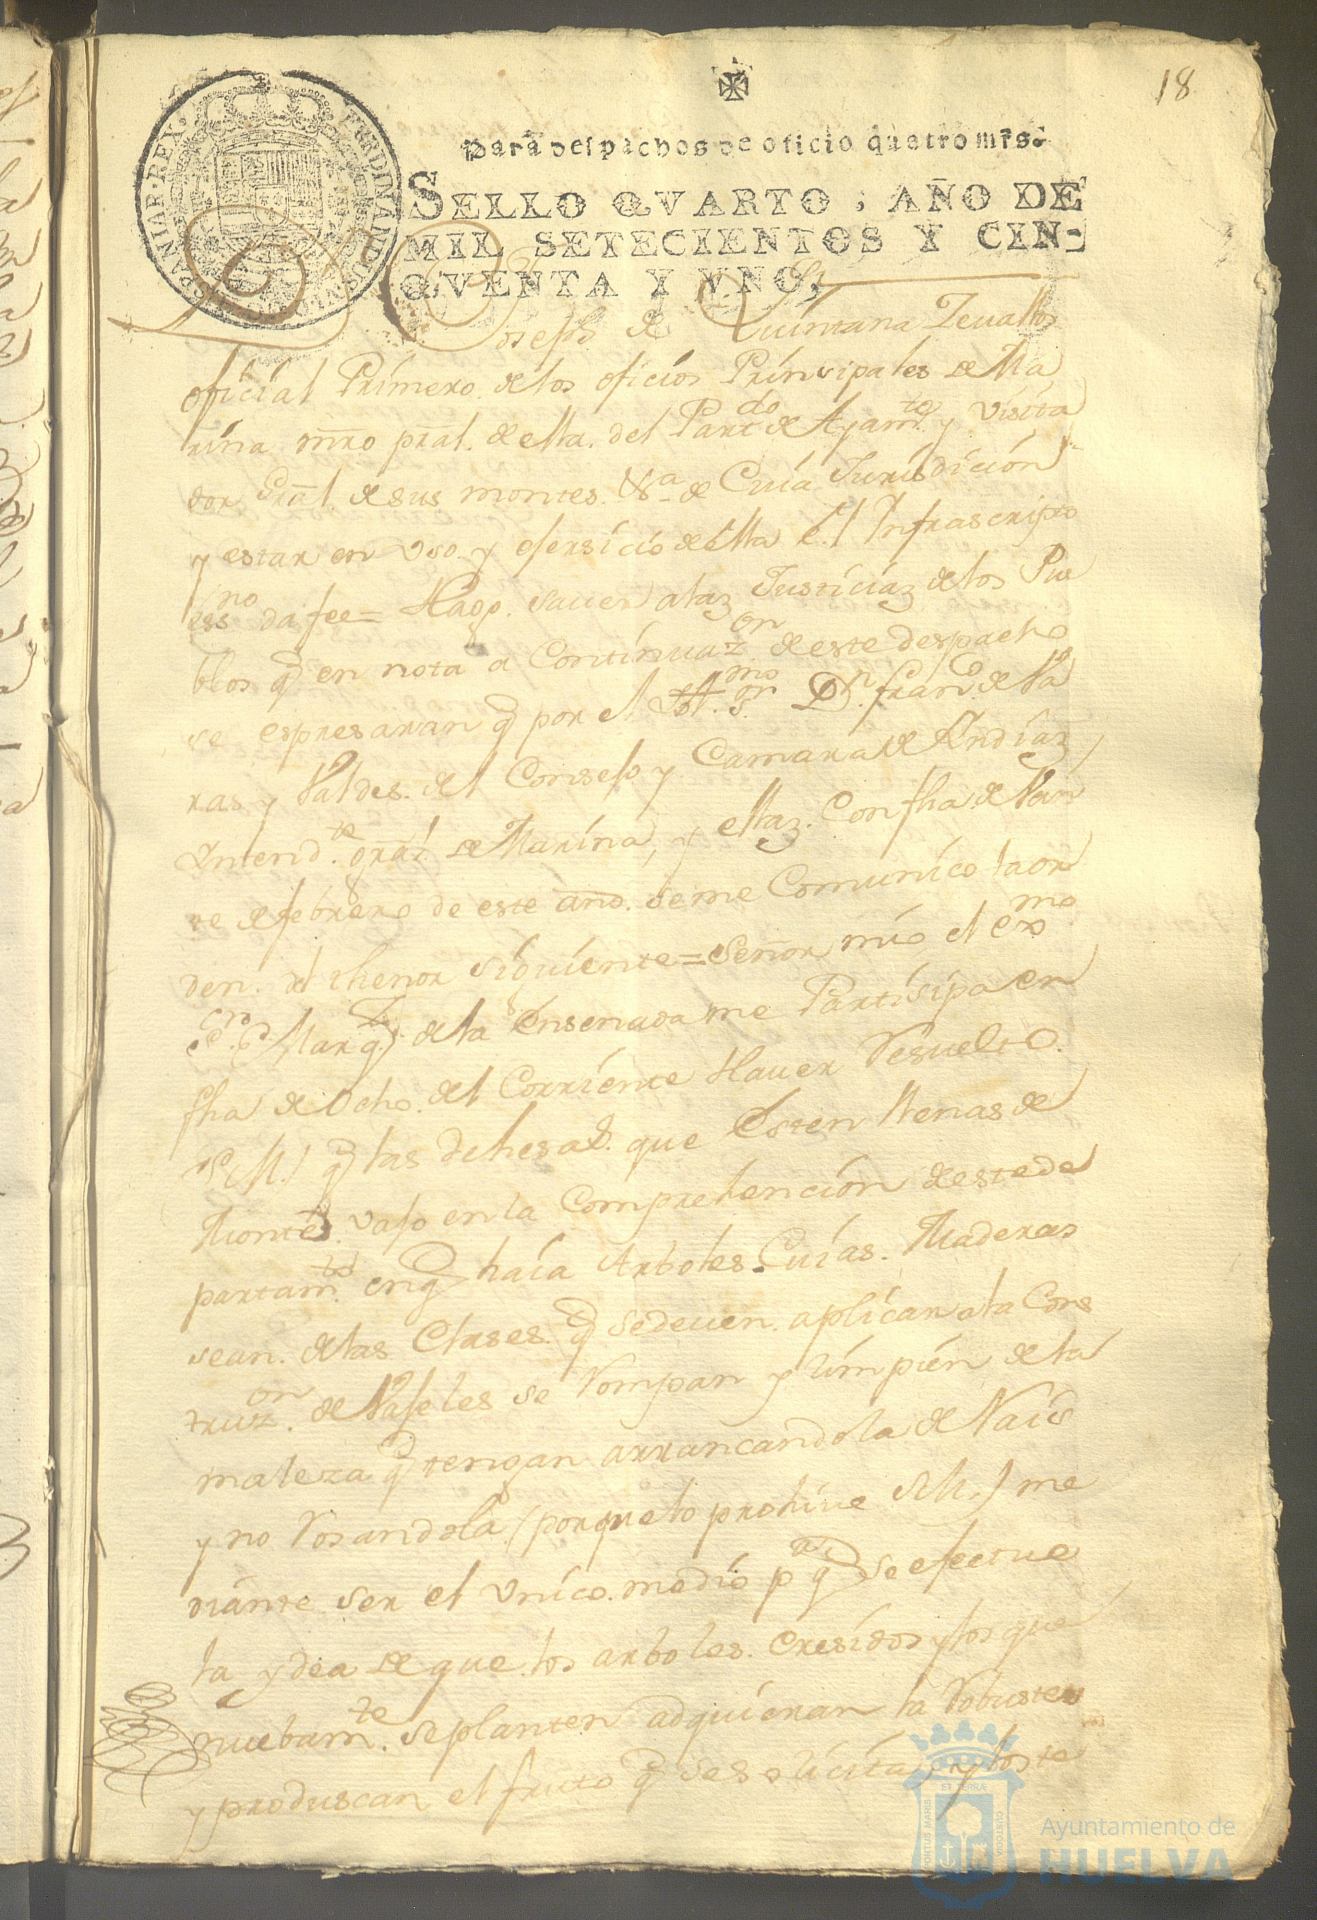 18
Para despachos de oficio quatro mrs.
SELLO QVARTO, AÑO DE
MIL SETECIENTOS Y CIN-
QVENTA Y VNO,
Dn Joseph de Quintana Zeuallos
oficial Primero de los oficios Prinsipales de Ma
rina mro pral. de ella del Partdo de Ayamte y visita
dor Gral de sus montes Vsa de Cuia Jurisdicion
y estar en Vso y esersicio de ella el Infrascripto
essno da fee = Hago sauer a las Justicias de los Pue
blos q en nota a Continuazon de este despacho
se espresaran q por el Illmo sor Dn franco de Va
ras y Valdes del Consejo y Camara de Indias
Intendte gral de Marina, y ellas Con fha de Vein
te de febrero de este año se me Comunico la or
den del thenor siguiente = Señor mio el exmo
Sor Marqs de la Ensenada me Partisipa en
fha de Ocho del Corriente Hauer Resuelto
S M q las dehesas que Esten llenas de
Monte vajo en la Comprehencion de este de
partamto en q haia Arboles Cuias Maderas
sean de las Clases q se deuen aplicar a la Cons
truzon de Vajeles se Rompan y limpien de la
maleza q tengan arrancandola de Rais
y no Rosandola (porque lo prohive S M) me
diante ser el vnico medio pa q se efectue
la ydea de que los arboles Cresidos y los que
nuebamte se planten adquieran la Robustes
y produscan el fruto q se solicita, y los te
Ayuntamiento de
HUELVA